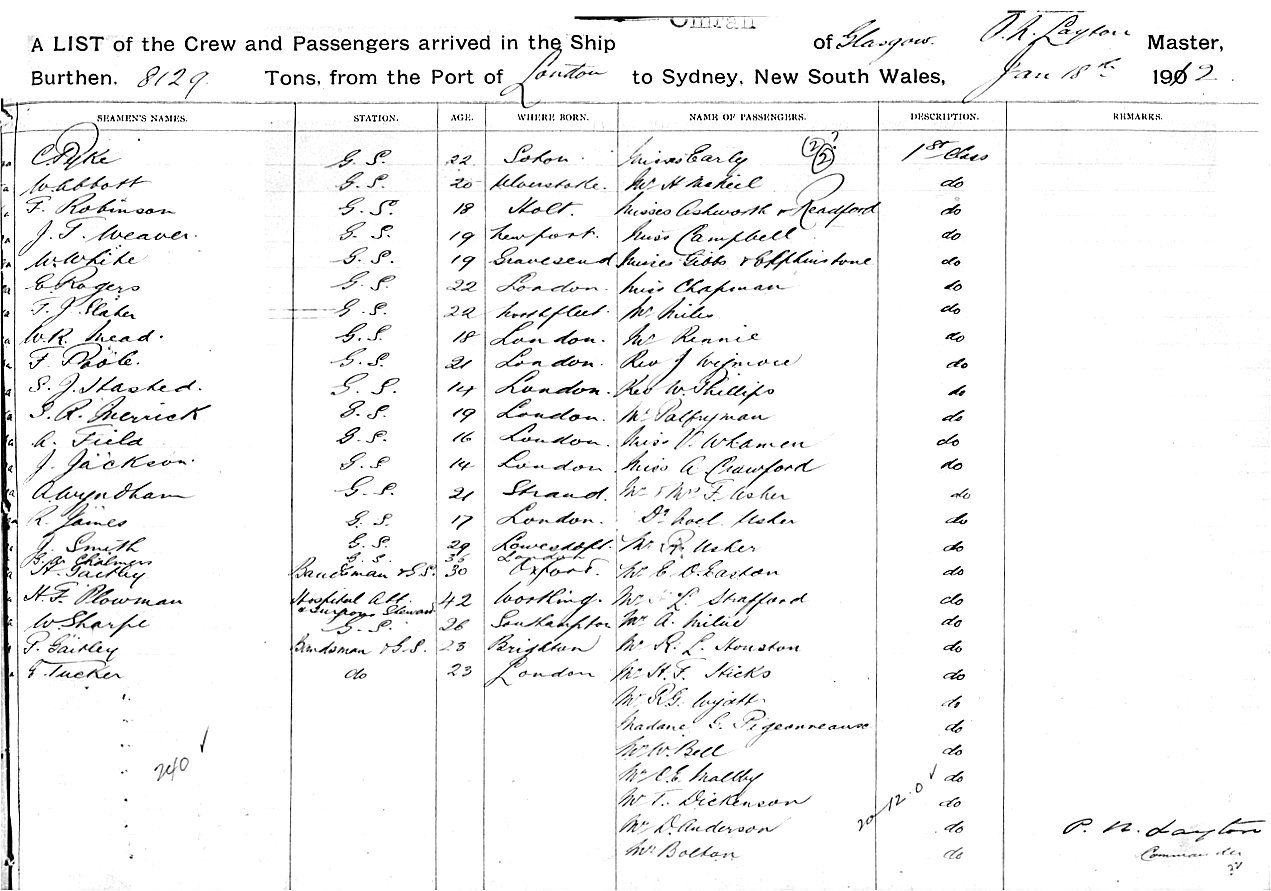 A LIST of the Crew and Passengers arrived in the Ship of Glasgow. Layton Master,
Burthen. 8129. Tons, from the Port of London to Sydney, New South Wales, Jan 18th 1912.
SEAMEN'S NAMES. STATION. AGE. WHERE BORN. NAME OF PASSENGERS. DESCRIPTION. REMARKS.
C Pyke G. S. 22 Soton. Misses Early (2) (2)? 1st Class
W Abbott G. S. 20 Ulverstoke. Mr H McNeil do
F. Robinson G. S. 18 Holt. Misses Ashworth & Readford do
J. T. Weaver. G. S. 19 Newport. Miss Campbell do
W. White G. S. 19 Gravesend Misses Gibbs & Elphinstone do
E Rogers G. S. 22 London. Miss Chapman do
T. J. Slater G. S. 22 Northfleet. Mr Miles do
W. R. Mead. G. S. 18 London. Mr Rennie do
F. Poole. G. S. 21 London. Rev J Wigmore do
S. J. G. S. 14 London. Rev W. Phillips do
Merrick G. S. 19 London. Mr Palfryman do
A. Field G. S. 16 London. Miss V. Whamen do
J. Jackson. G. S. 14 London. Miss A Crawford do
A. Wyndham G. S. 21 Strand. Mr & Mrs F. Usher do
R. James G. S. 17 London. Dr Noel Usher do
J. Smith G. S. 29 Lowestoft. Mr R. Usher do
Chalmers G. S. 36 London
H. Gaitley Bandsman & G.S. 30 Oxford. Mr E. O. Easton do
H. F. Plowman Hospital Att. 42 Worthing. Mr L. Strafford do
& Surgons Steward
W. Sharpe G. S. 26 Southampton Mr A. Milie do
P. Gaitley Bandsman & G.S. 23 Brighton Mr R. L. Houston do
Tucker do 23 London Mr H. F. Hicks do
Mr R.G. Wyatt. do
Madame G. Pigeonneause do
Mr W. Bell do
240 Mr C. E. Maltby do
Mr T. Dickenson 20-12-0 do
Mr D. Anderson do P. N. Layton
Mr Bolton do Commander